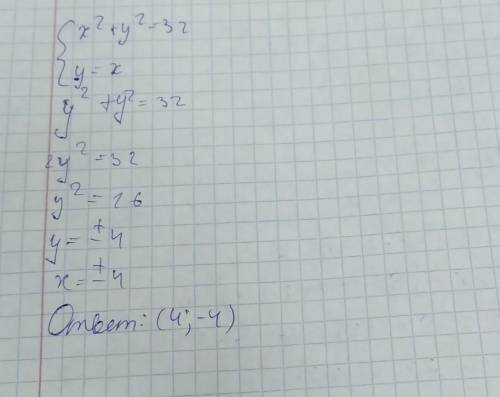 x² + y² = 32
y = x
y² + y² = 32
2y² = 32
y² = 16
y = ± 4
x = ± 4
Ответ: (4; -4)